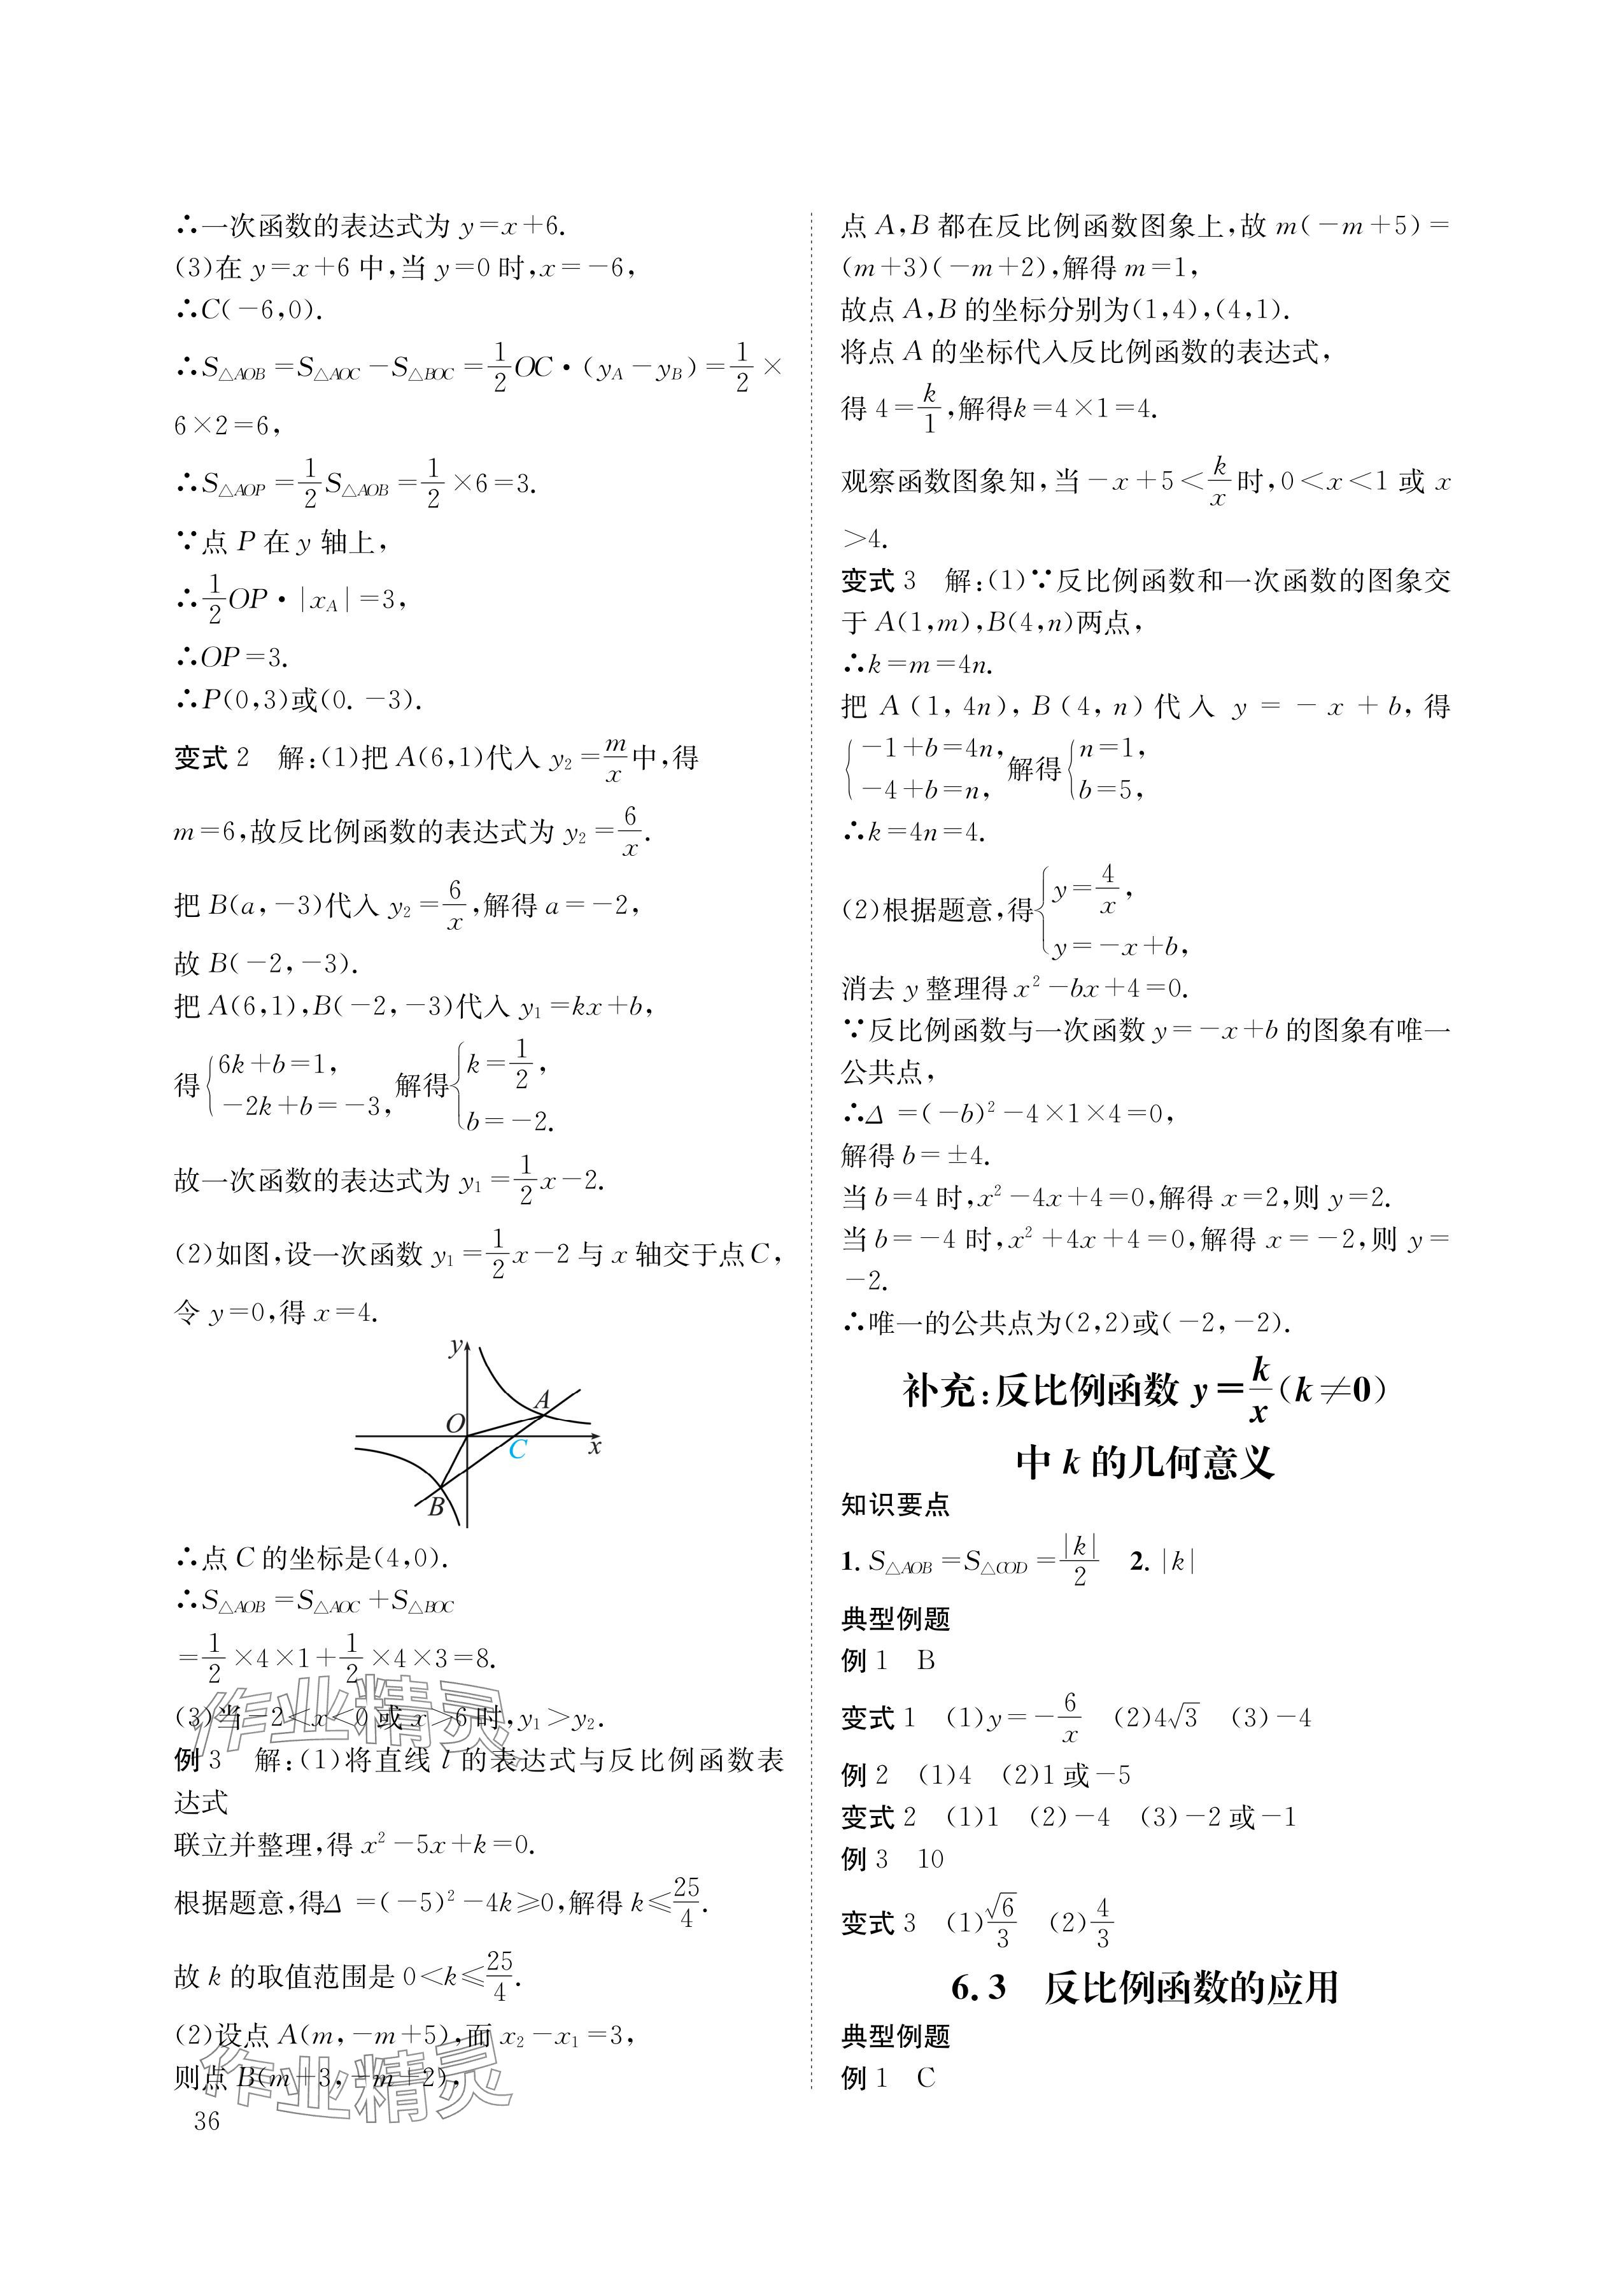 ∴一次函数的表达式为 y=x+6.
(3)在 y=x+6 中,当 y=0 时,x=-6,
∴C(-6,0).
∴S△AOB=S△AOC-S△BOC=1/2 OC·(yA-yB)=1/2×
6×2=6,
∴S△AOP=1/2 S△AOB=1/2×6=3.
∵点 P 在 y 轴上,
∴1/2 OP·|xA|=3,
∴OP=3.
∴P(0,3)或(0.-3).
变式 2 解:(1)把 A(6,1)代入 y₂=m/x 中,得
m=6,故反比例函数的表达式为 y₂=6/x.
把 B(a,-3)代入 y₂=6/x,解得 a=-2,
故 B(-2,-3).
把 A(6,1),B(-2,-3)代入 y₁=kx+b,
得{6k+b=1, -2k+b=-3, 解得{k=1/2, b=-2.
故一次函数的表达式为 y₁=1/2 x-2.
(2)如图,设一次函数 y₁=1/2 x-2 与 x 轴交于点 C,
令 y=0,得 x=4.
y
A
O
C
x
B
∴点 C 的坐标是(4,0).
∴S△AOB=S△AOC+S△BOC
=1/2×4×1+1/2×4×3=8.
(3)当-2<x<0 或 x>6 时,y₁>y₂.
例 3 解:(1)将直线 l 的表达式与反比例函数表
达式
联立并整理,得 x²-5x+k=0.
根据题意,得Δ=(-5)²-4k≥0,解得 k≤25/4.
故 k 的取值范围是 0<k≤25/4.
(2)设点 A(m,-m+5),而 x₂-x₁=3,
则点 B(m+3,-m+2),
36
点 A,B 都在反比例函数图象上,故 m(-m+5)=
(m+3)(-m+2),解得 m=1,
故点 A,B 的坐标分别为(1,4),(4,1).
将点 A 的坐标代入反比例函数的表达式,
得 4=k/1,解得k=4×1=4.
观察函数图象知,当-x+5<k/x 时,0<x<1 或 x
>4.
变式 3 解:(1)∵反比例函数和一次函数的图象交
于 A(1,m),B(4,n)两点,
∴k=m=4n.
把 A(1,4n),B(4,n)代入 y=-x+b,得
{-1+b=4n, -4+b=n, 解得{n=1, b=5,
∴k=4n=4.
(2)根据题意,得{y=4/x, y=-x+b,
消去 y 整理得 x²-bx+4=0.
∵反比例函数与一次函数 y=-x+b 的图象有唯一
公共点,
∴Δ=(-b)²-4×1×4=0,
解得 b=±4.
当 b=4 时,x²-4x+4=0,解得 x=2,则 y=2.
当 b=-4 时,x²+4x+4=0,解得 x=-2,则 y=
-2.
∴唯一的公共点为(2,2)或(-2,-2).
补充:反比例函数 y=k/x(k≠0)
中 k 的几何意义
知识要点
1. S△AOB=S△COD=|k|/2 2. |k|
典型例题
例 1 B
变式 1 (1)y=-6/x (2)4√3 (3)-4
例 2 (1)4 (2)1 或-5
变式 2 (1)1 (2)-4 (3)-2 或-1
例 3 10
变式 3 (1)√6/3 (2)4/3
6.3 反比例函数的应用
典型例题
例 1 C
作业精灵
作业精灵